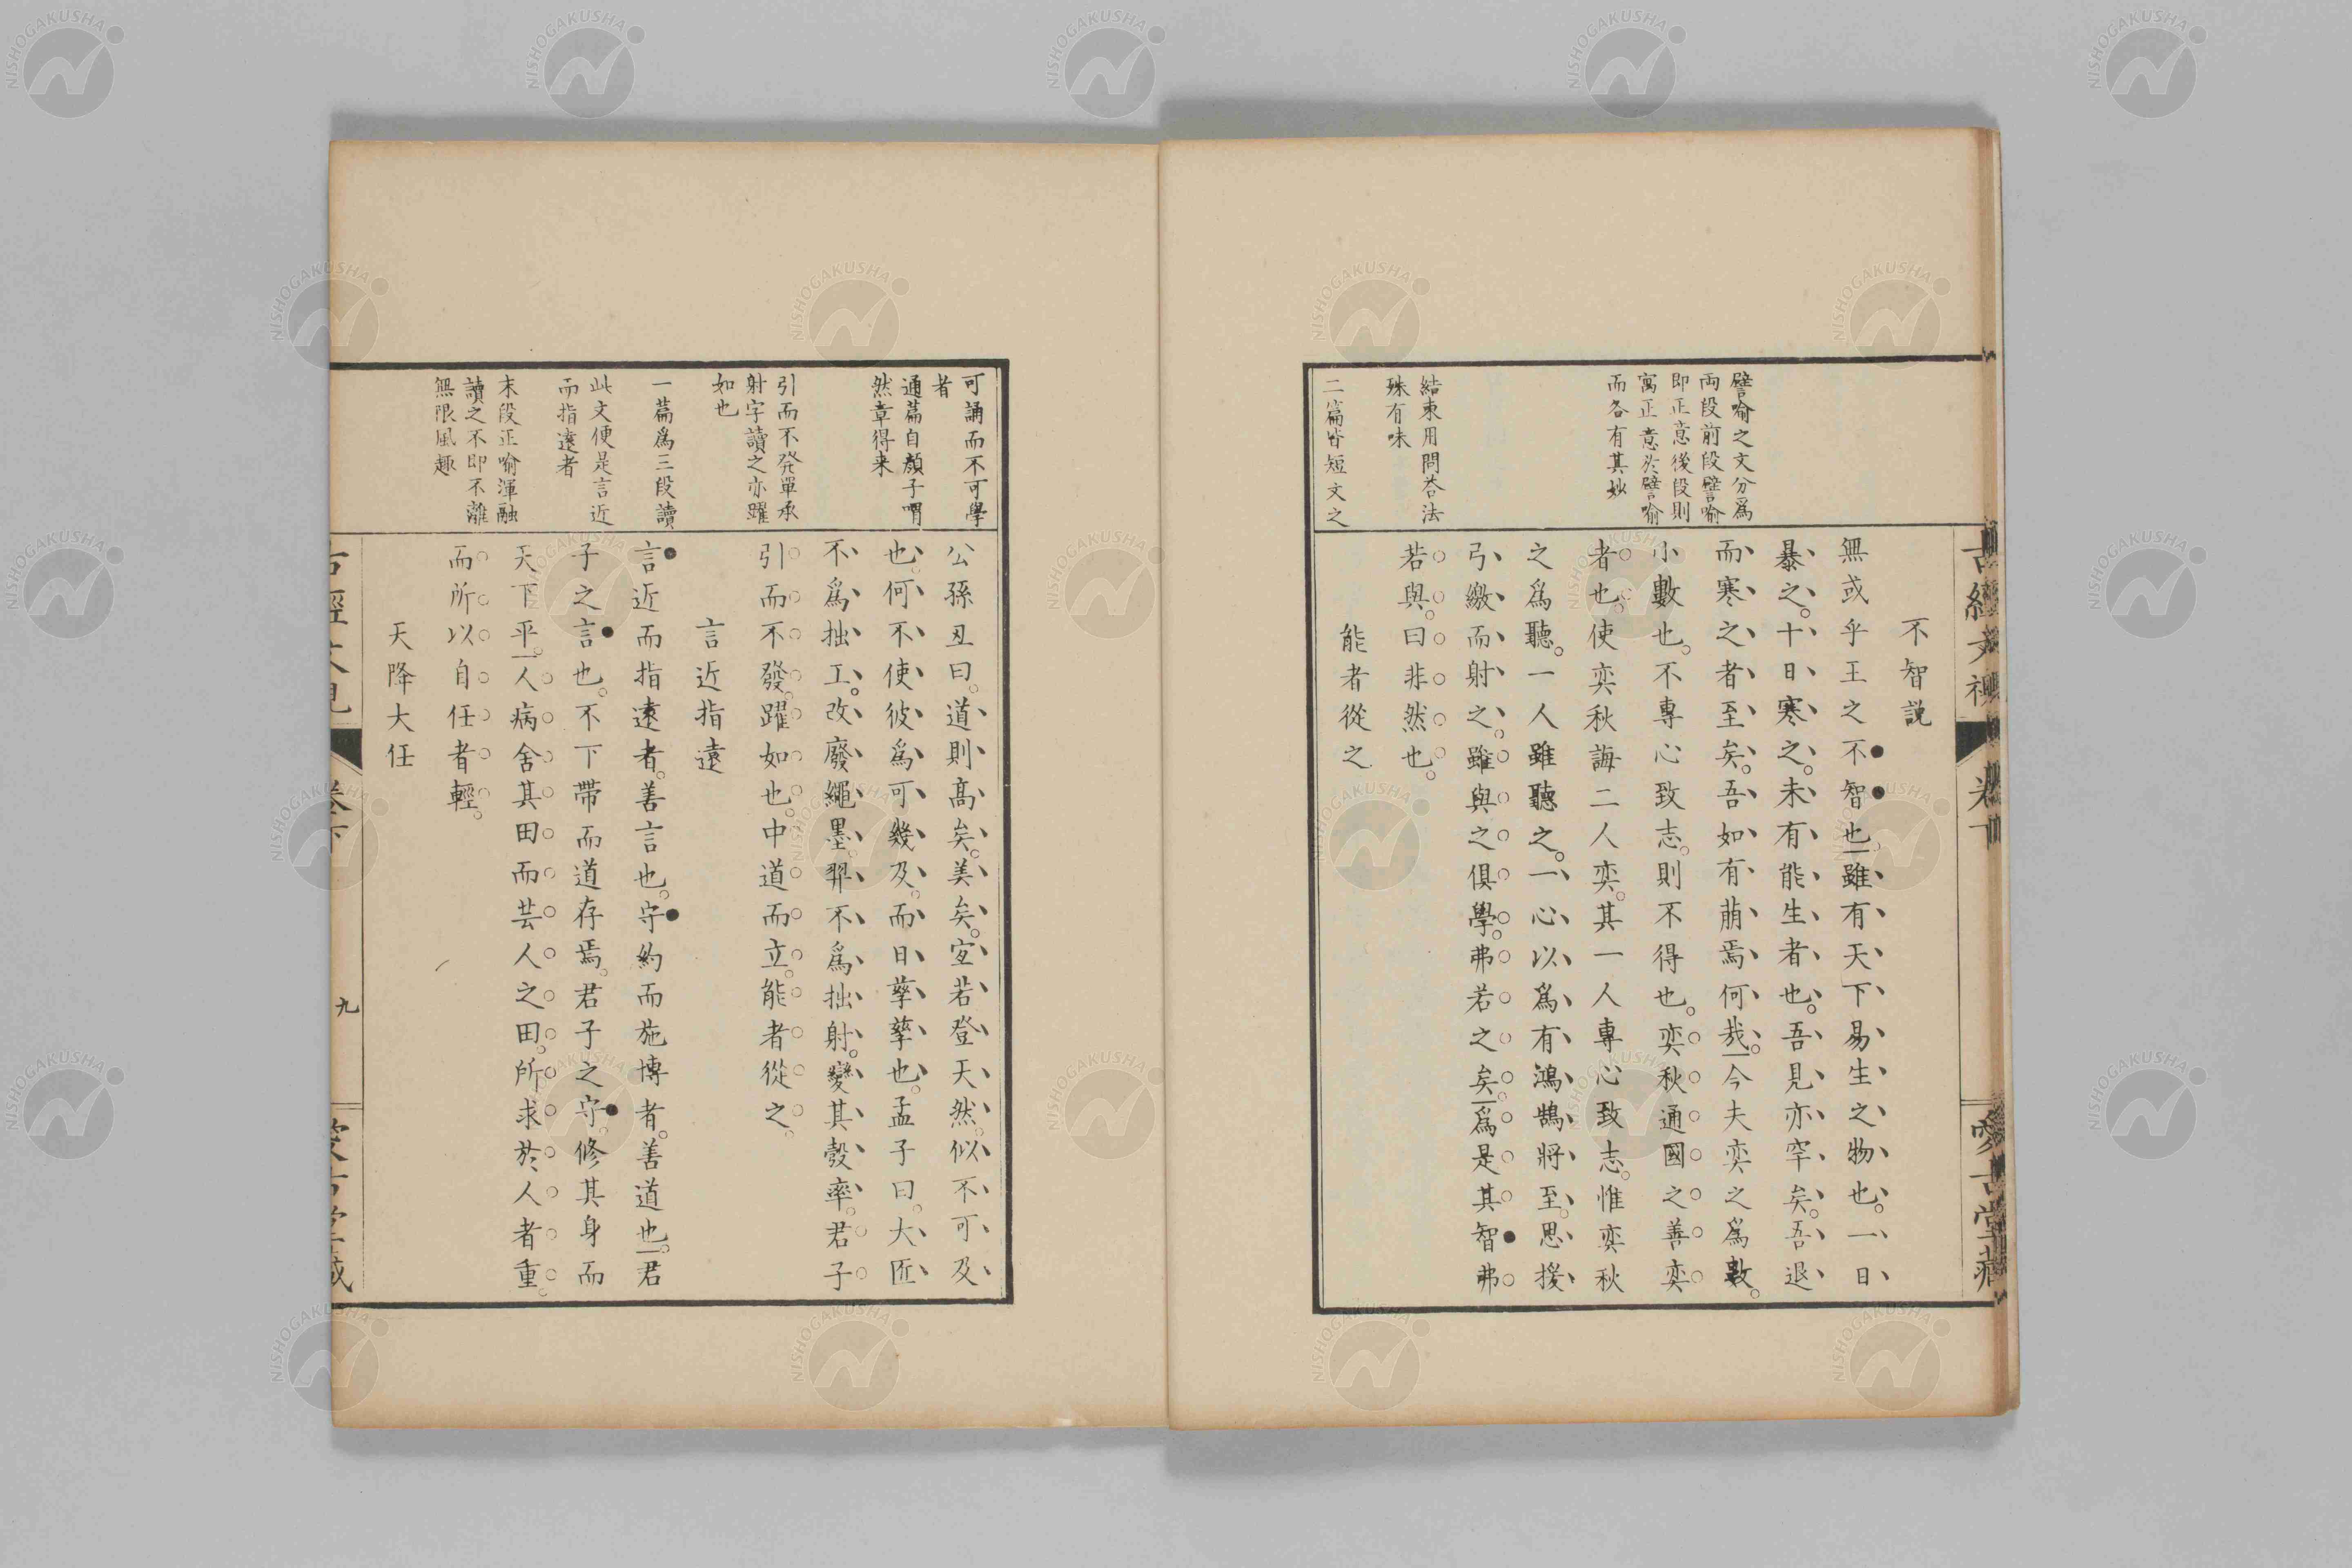 譬喻之文分爲
両段前段譬喻
即正意後段則
寓正意於譬喻
而各有其妙
結束用問荅法
殊有味
二篇皆短文之
不智説
無或乎王之不智也雖有天下易生之物也。一日
暴之。十日寒之。未有能生者也。吾見亦罕矣。吾退
而寒之者至矣。吾如有萠焉何哉。今夫奕之爲數。
小數也。不專心致志。則不得也。奕秋通國之善奕
者也。使奕秋誨二人奕。其一人專心致志。惟奕秋
之爲聽。一人雖聽之。一心以爲有鴻鵠將至。思援
弓繳而射之。雖與之俱學。弗若之矣。爲是其智弗
若與。曰非然也。
能者從之
可誦而不可學
者
通篇自顏子喟
然章得来
引而不発單承
射字讀之亦躍
如也
一篇爲三段讀
此文便是言近
而指遠者
末段正喻渾融
讀之不即不離
無限風趣
公孫丑曰。道則高矣。美矣。宜若登天然。似不可及
也。何不使彼爲可幾及。而日孳孳也。孟子曰。大匠
不爲拙工。改廢繩墨。羿不爲拙射。變其彀率。君子
引而不發。躍如也。中道而立。能者從之。
言近指遠
言近而指遠者。善言也。守約而施博者。善道也。君
子之言也。不下帶而道存焉。君子之守。修其身而
天下平。人病舍其田而芸人之田。所求於人者重。
而所以自任者輕。
天降大任
卷下
九